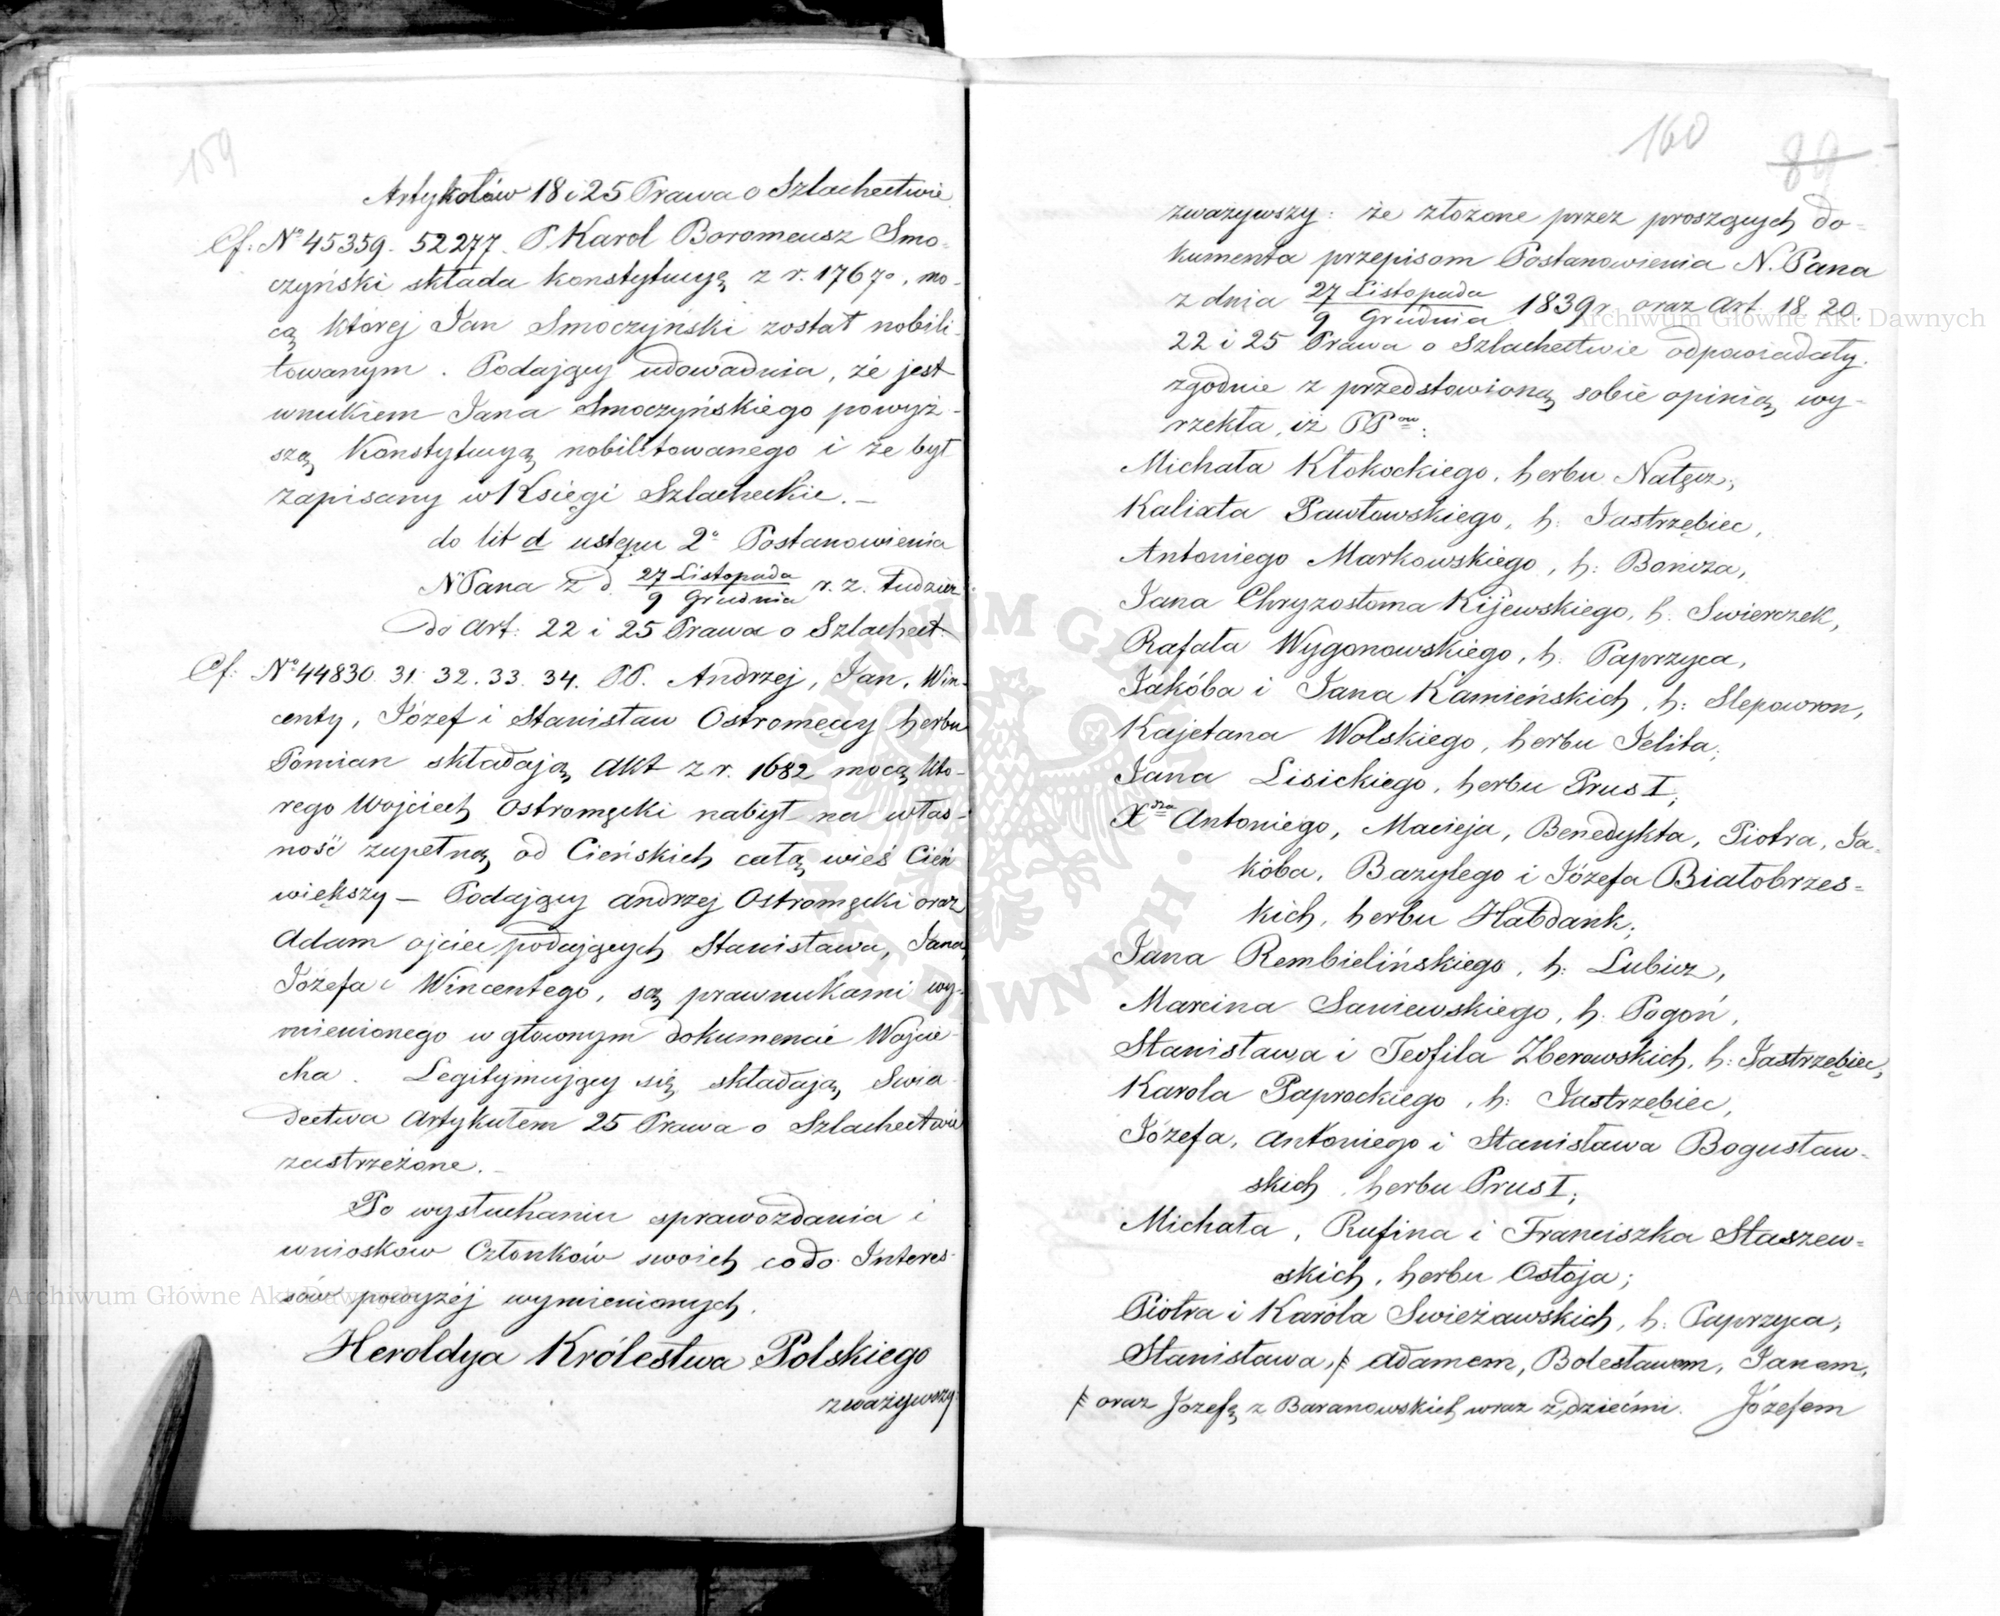 159
Artykołów 18 i 25 Prawa o Szlachectwie
Cf. Nº 45359. 52277. P. Karol Boromeusz Smo-
czyński składa konstytucyą z r. 1767º, mo-
cą której Jan Smoczyński został nobili-
towanym. Podający udowadnia, że jest
wnukiem Jana Smoczyńskiego powyż-
szą Konstytucyą nobilitowanego i że był
zapisany w Księgi Szlacheckie. —
do lit d ustępu 2º Postanowienia
N Pana z d. 27 Listopada / 9 Grudnia r. z. tudzież
do Art: 22 i 25 Prawa o Szlachect:
Cf: Nº 44830. 31. 32. 33. 34. PP. Andrzej, Jan, Win-
centy, Józef i Stanisław Ostromęccy herbu
Pomian składają Akt z r. 1682 mocą któ-
rego Wojciech Ostromęcki nabył na włas-
ność zupełną od Cieńskich całą wieś Cień
większy — Podający Andrzej Ostromęcki oraz
Adam ojciec podających Stanisława, Jana,
Józefa i Wincentego, są prawnukami wy-
mienionego w głównym dokumencie Wojcie-
cha. Legitymujący się składają Świa-
dectwa Artykułem 25 Prawa o Szlachectwie
zastrzeżone. —
Po wysłuchaniu sprawozdania i
wniosków Członków swoich co do Interes-
sów powyżej wymienionych.
Heroldya Królestwa Polskiego
zważywszy
160
89
zważywszy: że złożone przez proszących do-
kumenta przepisom Postanowienia N. Pana
z dnia 27 Listopada / 9 Grudnia 1839 r. oraz Art. 18. 20.
22 i 25 Prawa o Szlachectwie odpowiadały.
zgodnie z przedstawioną sobie opinią wy-
rzekła, iż PPów:
Michała Kłokockiego, herbu Nałęcz;
Kalixta Pawłowskiego, h: Jastrzębiec,
Antoniego Markowskiego, h: Boncza,
Jana Chryzostoma Kijewskiego, h. Swierczek,
Rafała Wygonowskiego, h: Paprzyca,
Jakóba i Jana Kamieńskich, h: Slepowron,
Kajetana Wolskiego, herbu Jelita;
Jana Lisickiego, herbu Prus I;
Xdza Antoniego, Macieja, Benedykta, Piotra, Ja-
kóba, Bazylego i Józefa Białobrzes-
kich, herbu Habdank;
Jana Rembielińskiego, h: Lubicz,
Marcina Saniewskiego, h. Pogoń,
Stanisława i Teofila Zberowskich, h: Jastrzębiec,
Karola Paprockiego, h: Jastrzębiec,
Józefa, Antoniego i Stanisława Bogusław-
skich, herbu Prus I;
Michała, Rufina i Franciszka Staszew-
skich, herbu Ostoja;
Piotra i Karola Swieżawskich, h: Paprzyca;
Stanisława, # Adamem, Bolesławem, Janem,
# oraz Józefą z Baranowskich wraz z dziećmi. Józefem
Archiwum Główne Akt Dawnych
Archiwum Główne Akt Dawnych
ARCHIWUM GŁÓWNE AKT DAWNYCH